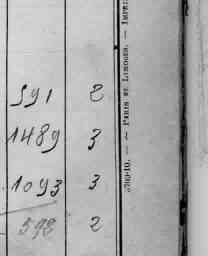 591 2
1489 3
1093 3
598 2
5360-10. — PARIS ET LIMOGES. — IMPR